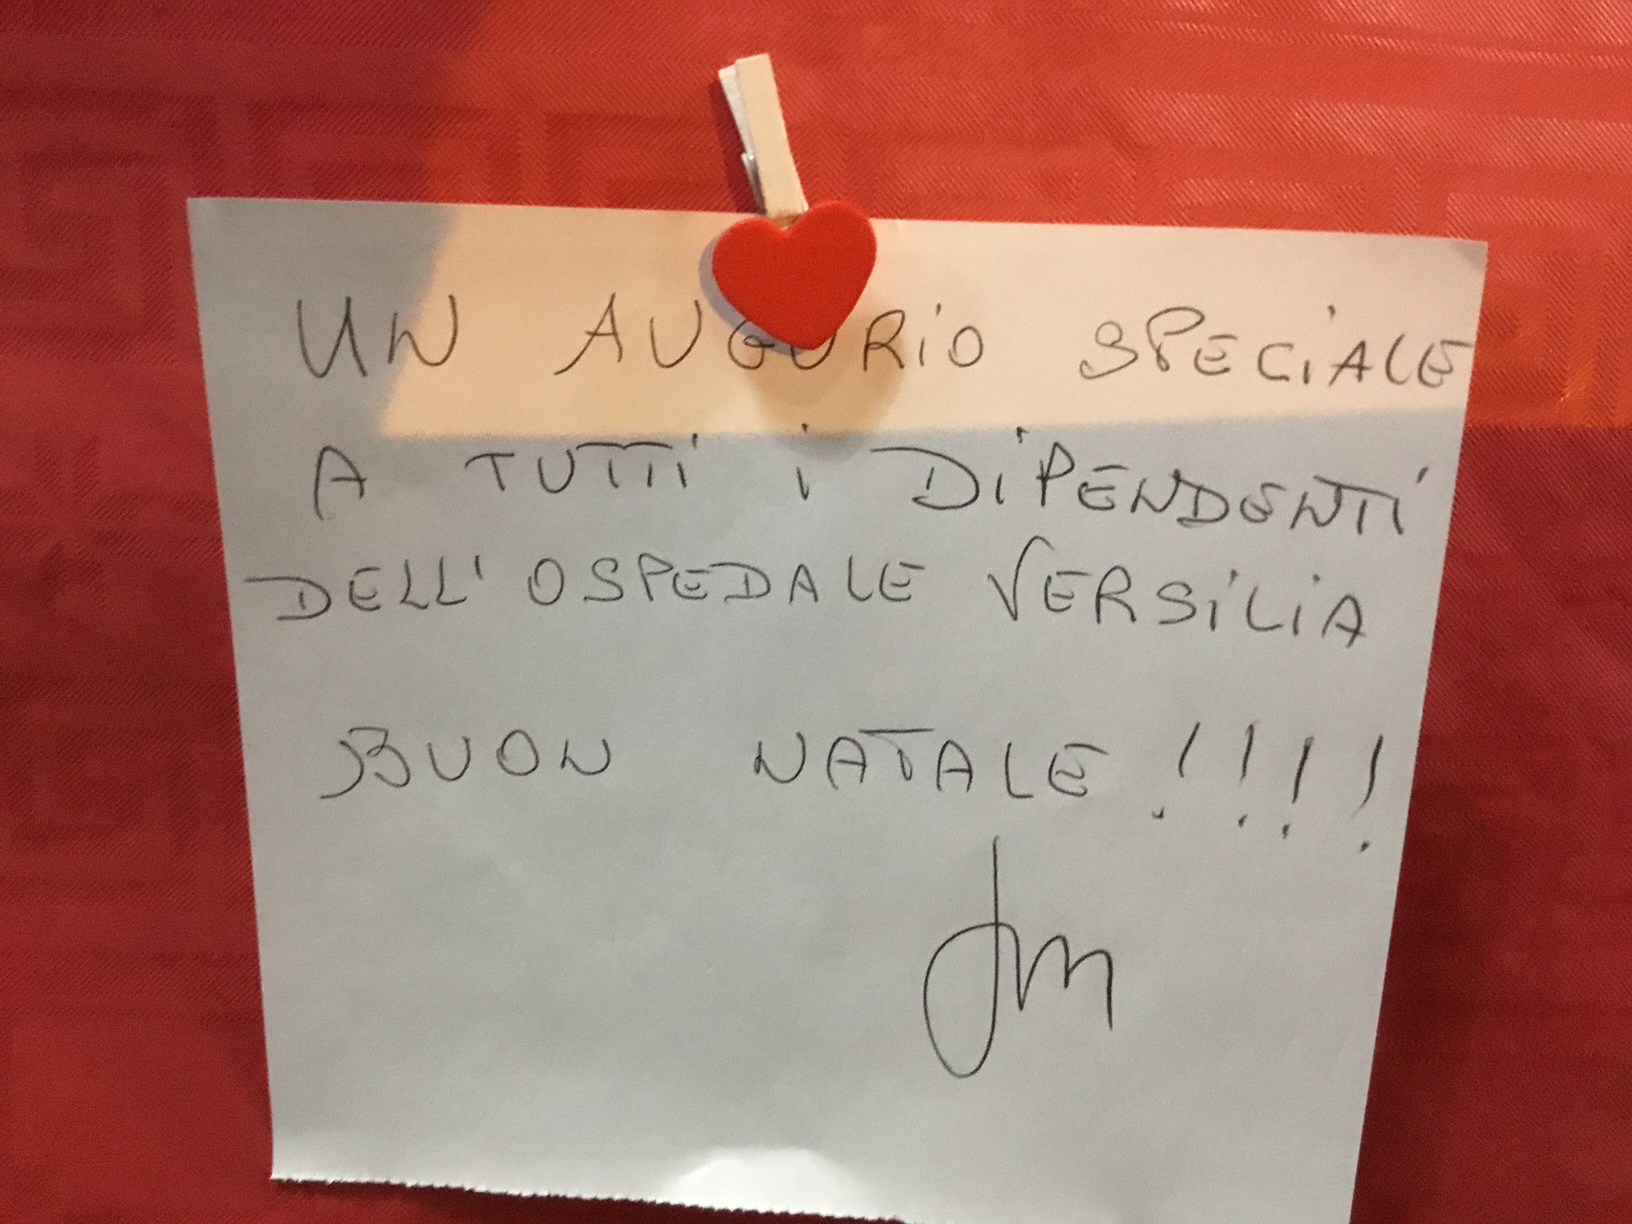 UN AUGURIO SPECIALE
A TUTTI i DIPENDENTI
DELL'OSPEDALE VERSILIA
BUON NATALE!!!!